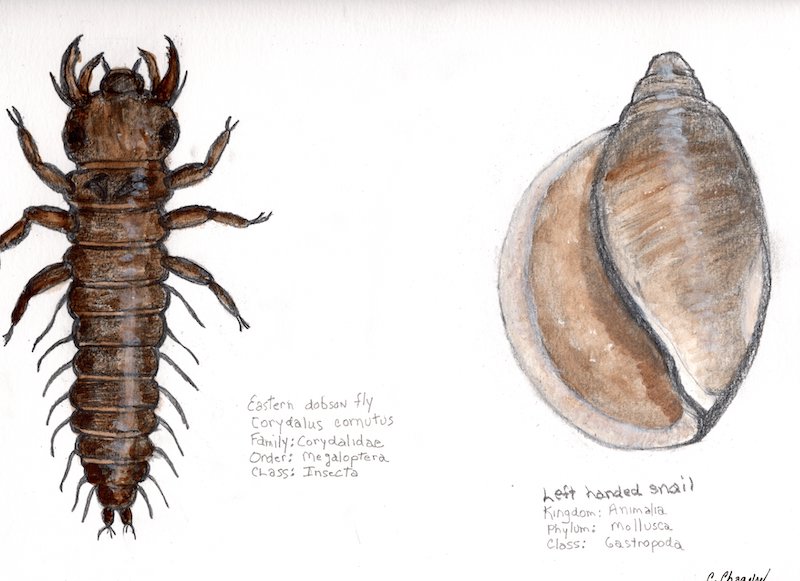 Eastern dobson fly
Corydalus cornutus
Family: Corydalidae
Order: Megaloptera
Class: Insecta
Left handed snail
Kingdom: Animalia
Phylum: Mollusca
Class: Gastropoda
C.